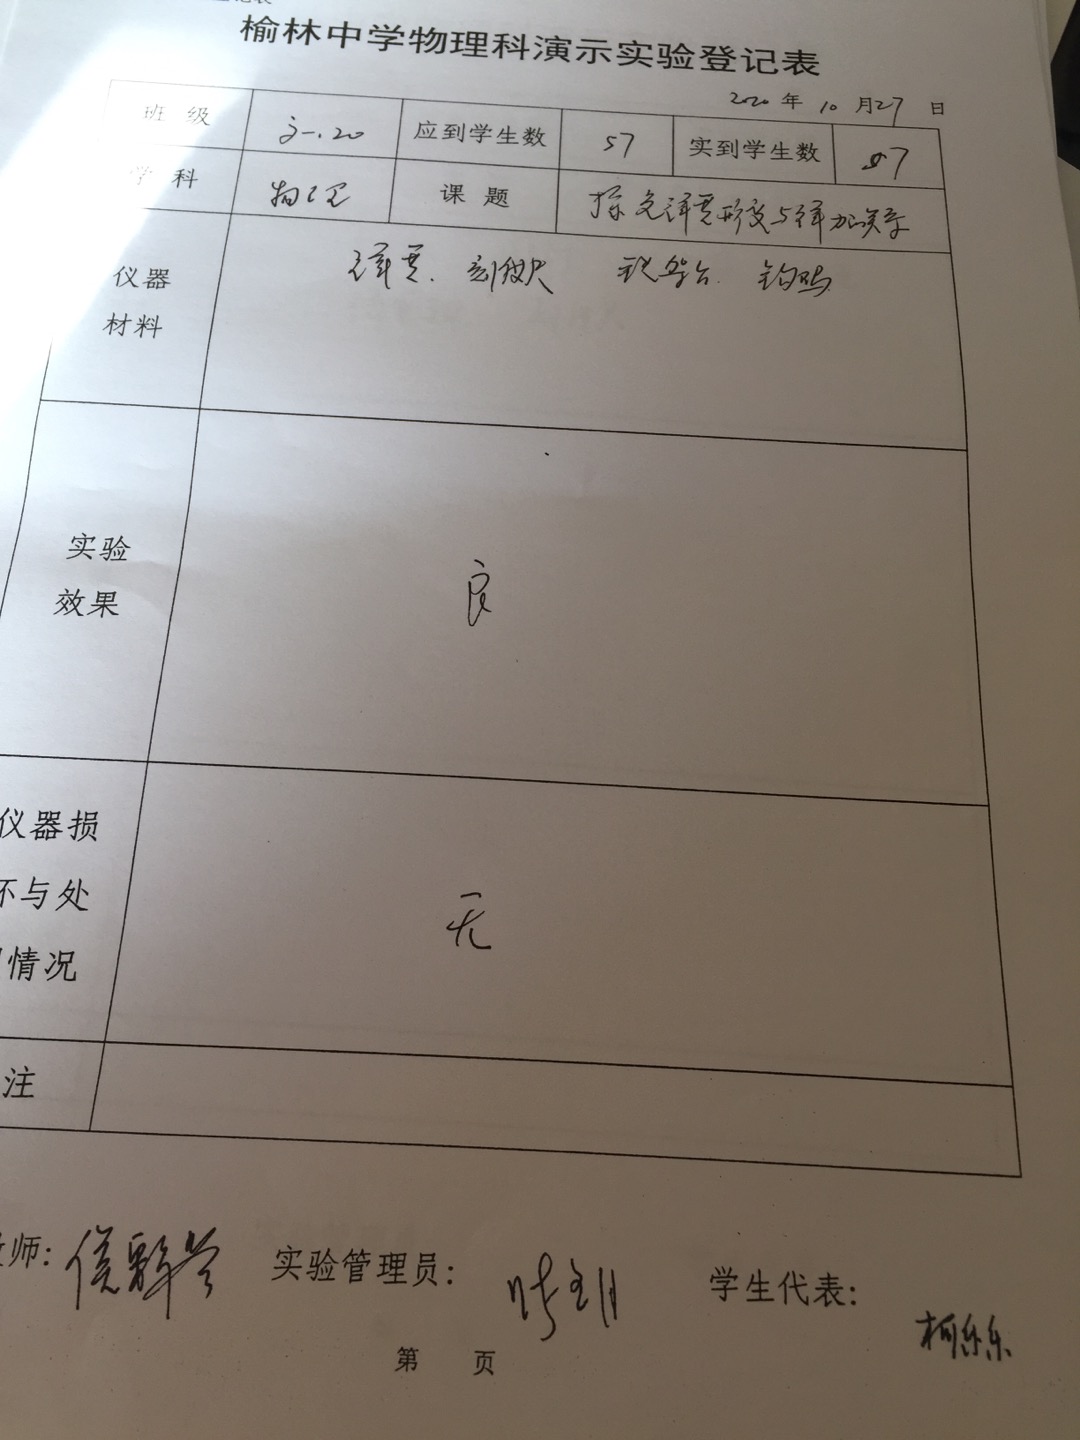 榆林中学物理科演示实验登记表
2020 年 10 月 27 日
班 级 20 应到学生数 57 实到学生数 57
学 科 物理 课 题 探究弹簧形变与弹力的关系
仪器 弹簧. 刻度尺 铁架台. 钩码
材料
实验
效果
良
仪器损
坏与处
情况
无
注
师: 实验管理员: 学生代表: 柯乐乐
第 页